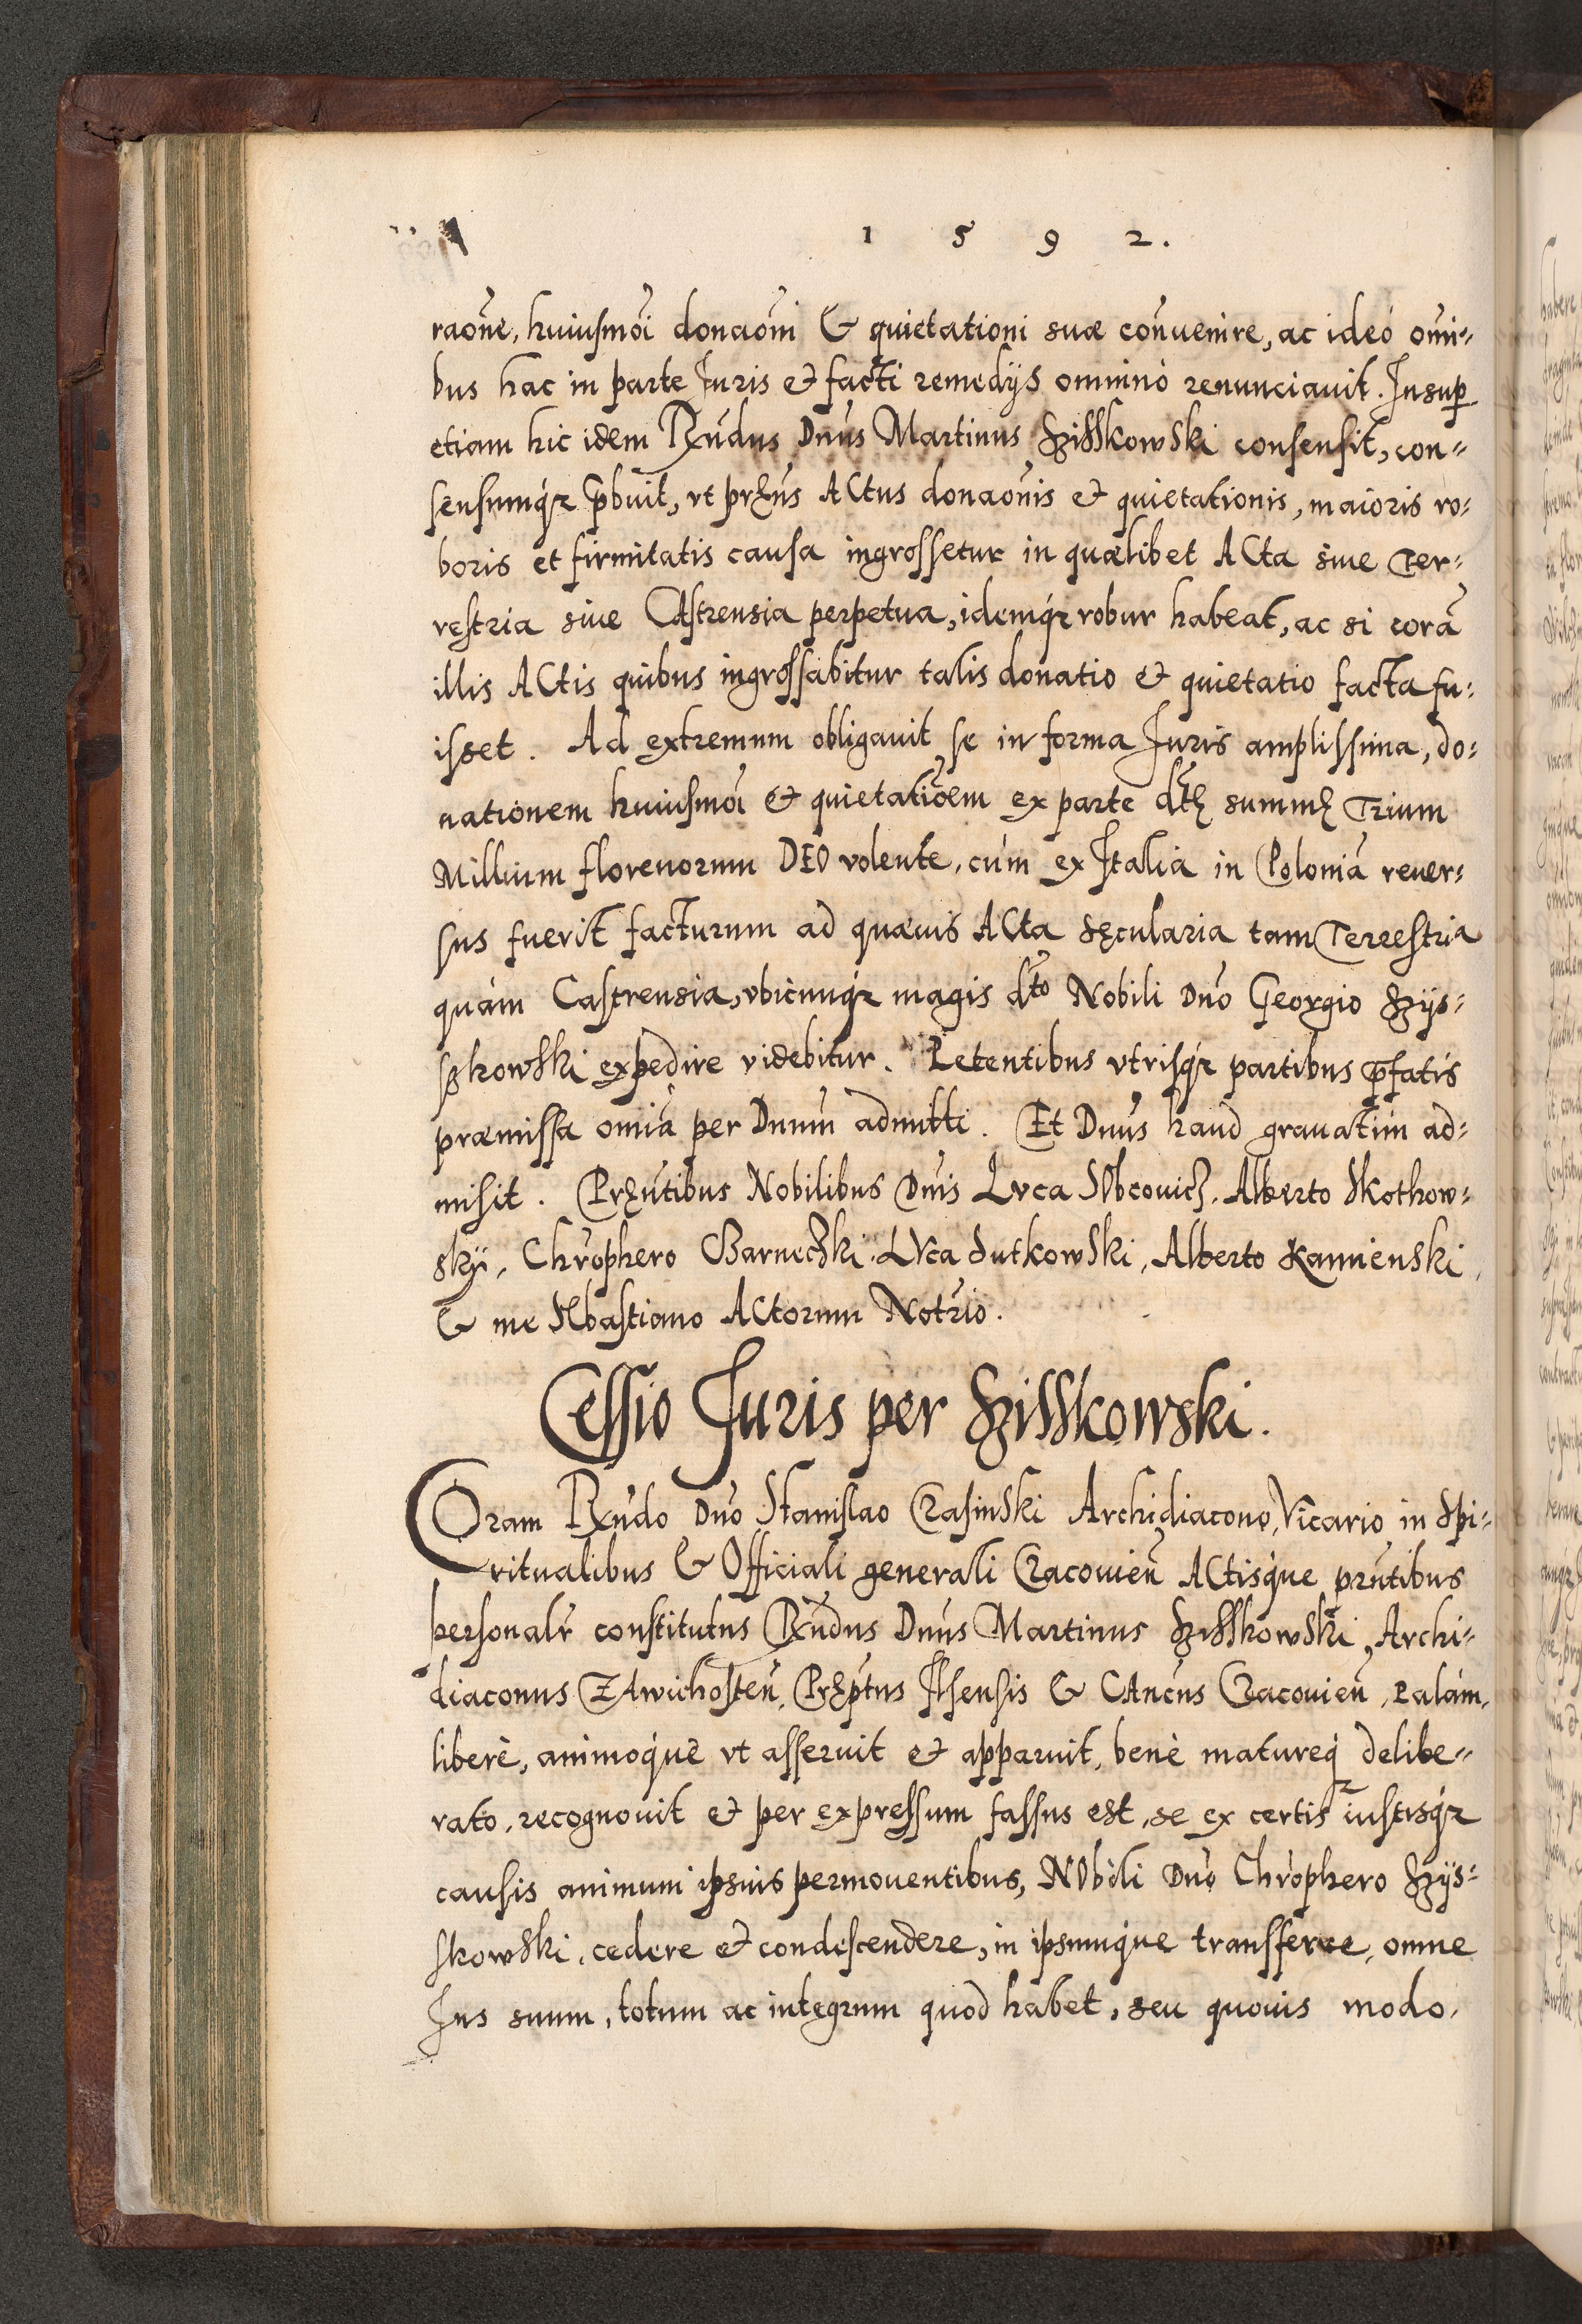 1592.
raõne, huiusmõi donaõni & quietationi suæ conuenire, ac ideò omi-
bus hac in parte Juris et facti remedijs omninò renunciauit. Insup
etiam hic idem Rñdus Dnus Martinus Szisskowski consensit, con-
sensumq₃ p̃buit, vt pr̃ns Actus donaõnis et quietationis, maioris ro-
boris et firmitatis causa ingrossetur in quælibet Acta siue Ter-
restria siue Castrensia perpetua, idemq₃ robur habeat, ac si corã
illis Actis quibus ingrossabitur talis donatio et quietatio facta fu-
isset. Ad extremum obligauit se in forma Juris amplissima, do-
nationem huiusmõi et quietatiõem ex parte dtę summę Trium
Millium florenorum DEO volente, cùm ex Italia in Poloniã reuer-
sus fuerit facturum ad quæuis Acta sęcularia tam Terrestria
quàm Castrensia, vbicunq₃ magis dto Nobili Dño Georgio Szijs-
skowski expedire videbitur. Petentibus vtrisq₃ partibus p̃fatis
præmissa omiã per Dnum admitti. Et Dnus haud grauatim ad-
misit. Prꝫntibus Nobilibus Dnis Luca Slbcouicz, Alberto Skotkow-
skÿ, Chrõphero Barneczki, Luca Sutkowski, Alberto Kamienski,
& me Sebastiano Actorum Notrio.
Cessio Juris per Szisskowski.
Coram Rñdo Dño Stanislao Crasinski Archidiacono, Vicario in Spi-
ritualibus & Officiali generali Cracouieñ Actisque pr̃ntibus
personalr̃ constitutus Rñdus Dnus Martinus Szisskowski, Archi-
diaconus Zawichosteñ, Prꝫptus Ilsensis & Cancus Cracouieñ, palàm,
liberè, animoque vt asseruit et apparuit, benè matureq₃ delibe-
rato, recognouit et per expressum fassus est, se ex certis iustisq₃
causis animum ipsius permouentibus, Nobili Dño Chrõphero Szijs-
skowski, cedere et condescendere, in ipsumque transferre, omne
Jus suum, totum ac integrum quod habet, seu quouis modo,